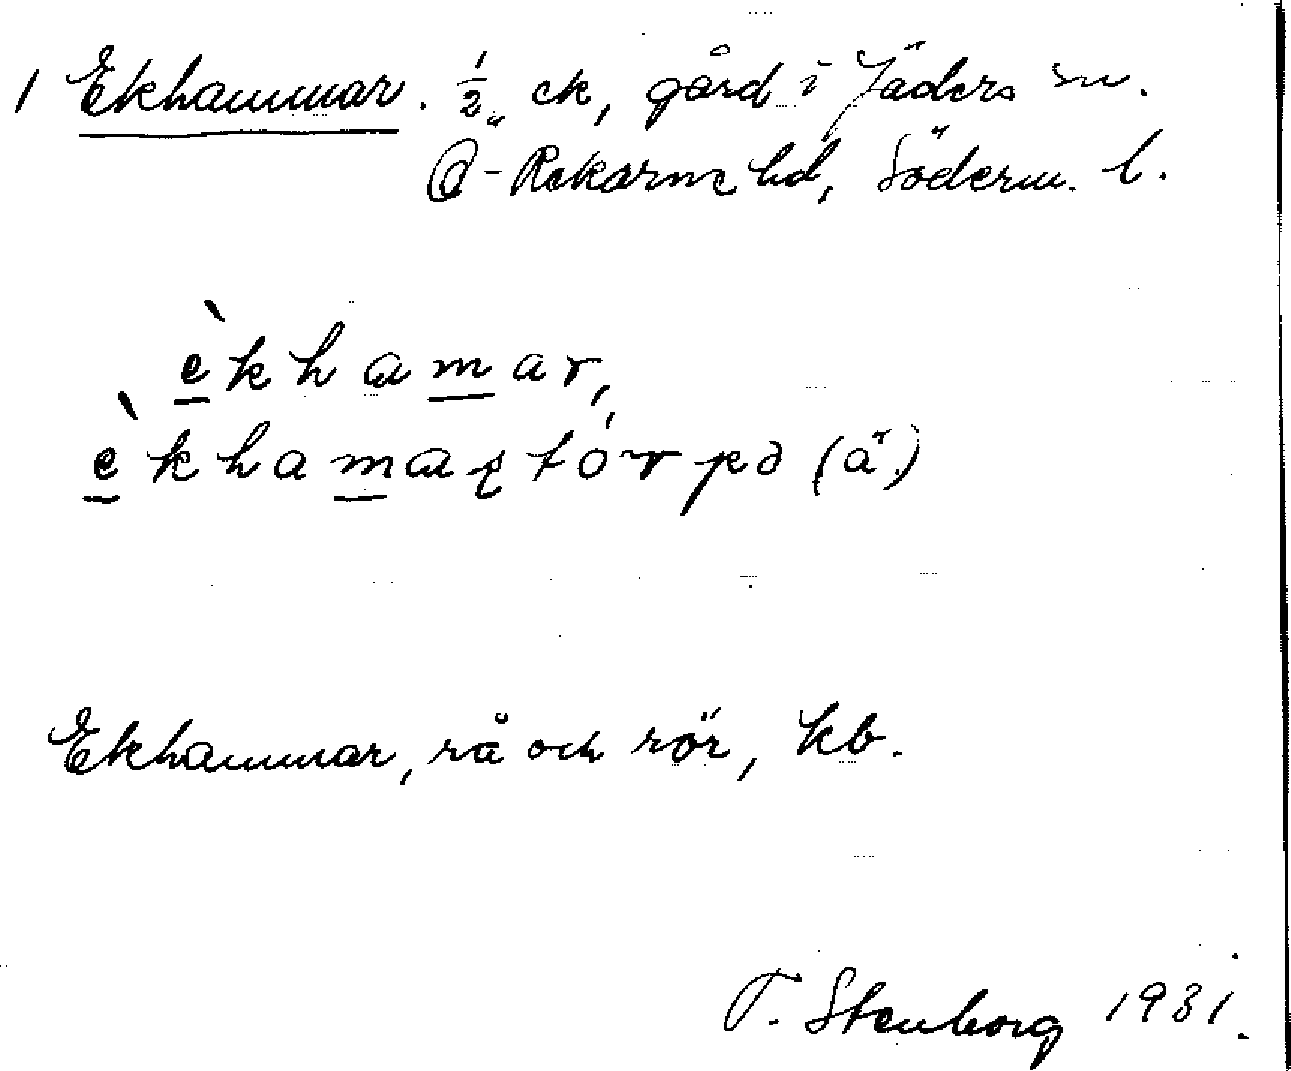 1 Ekhammar. 1/2 ek, gård i Jäders sn.
Ö-Rekarne hd, Söderm. l.
èkhamar,
èkhamaʂtórpə (ä)
Ekhammar, rå och rör, kb.
T. Stenborg 1931.